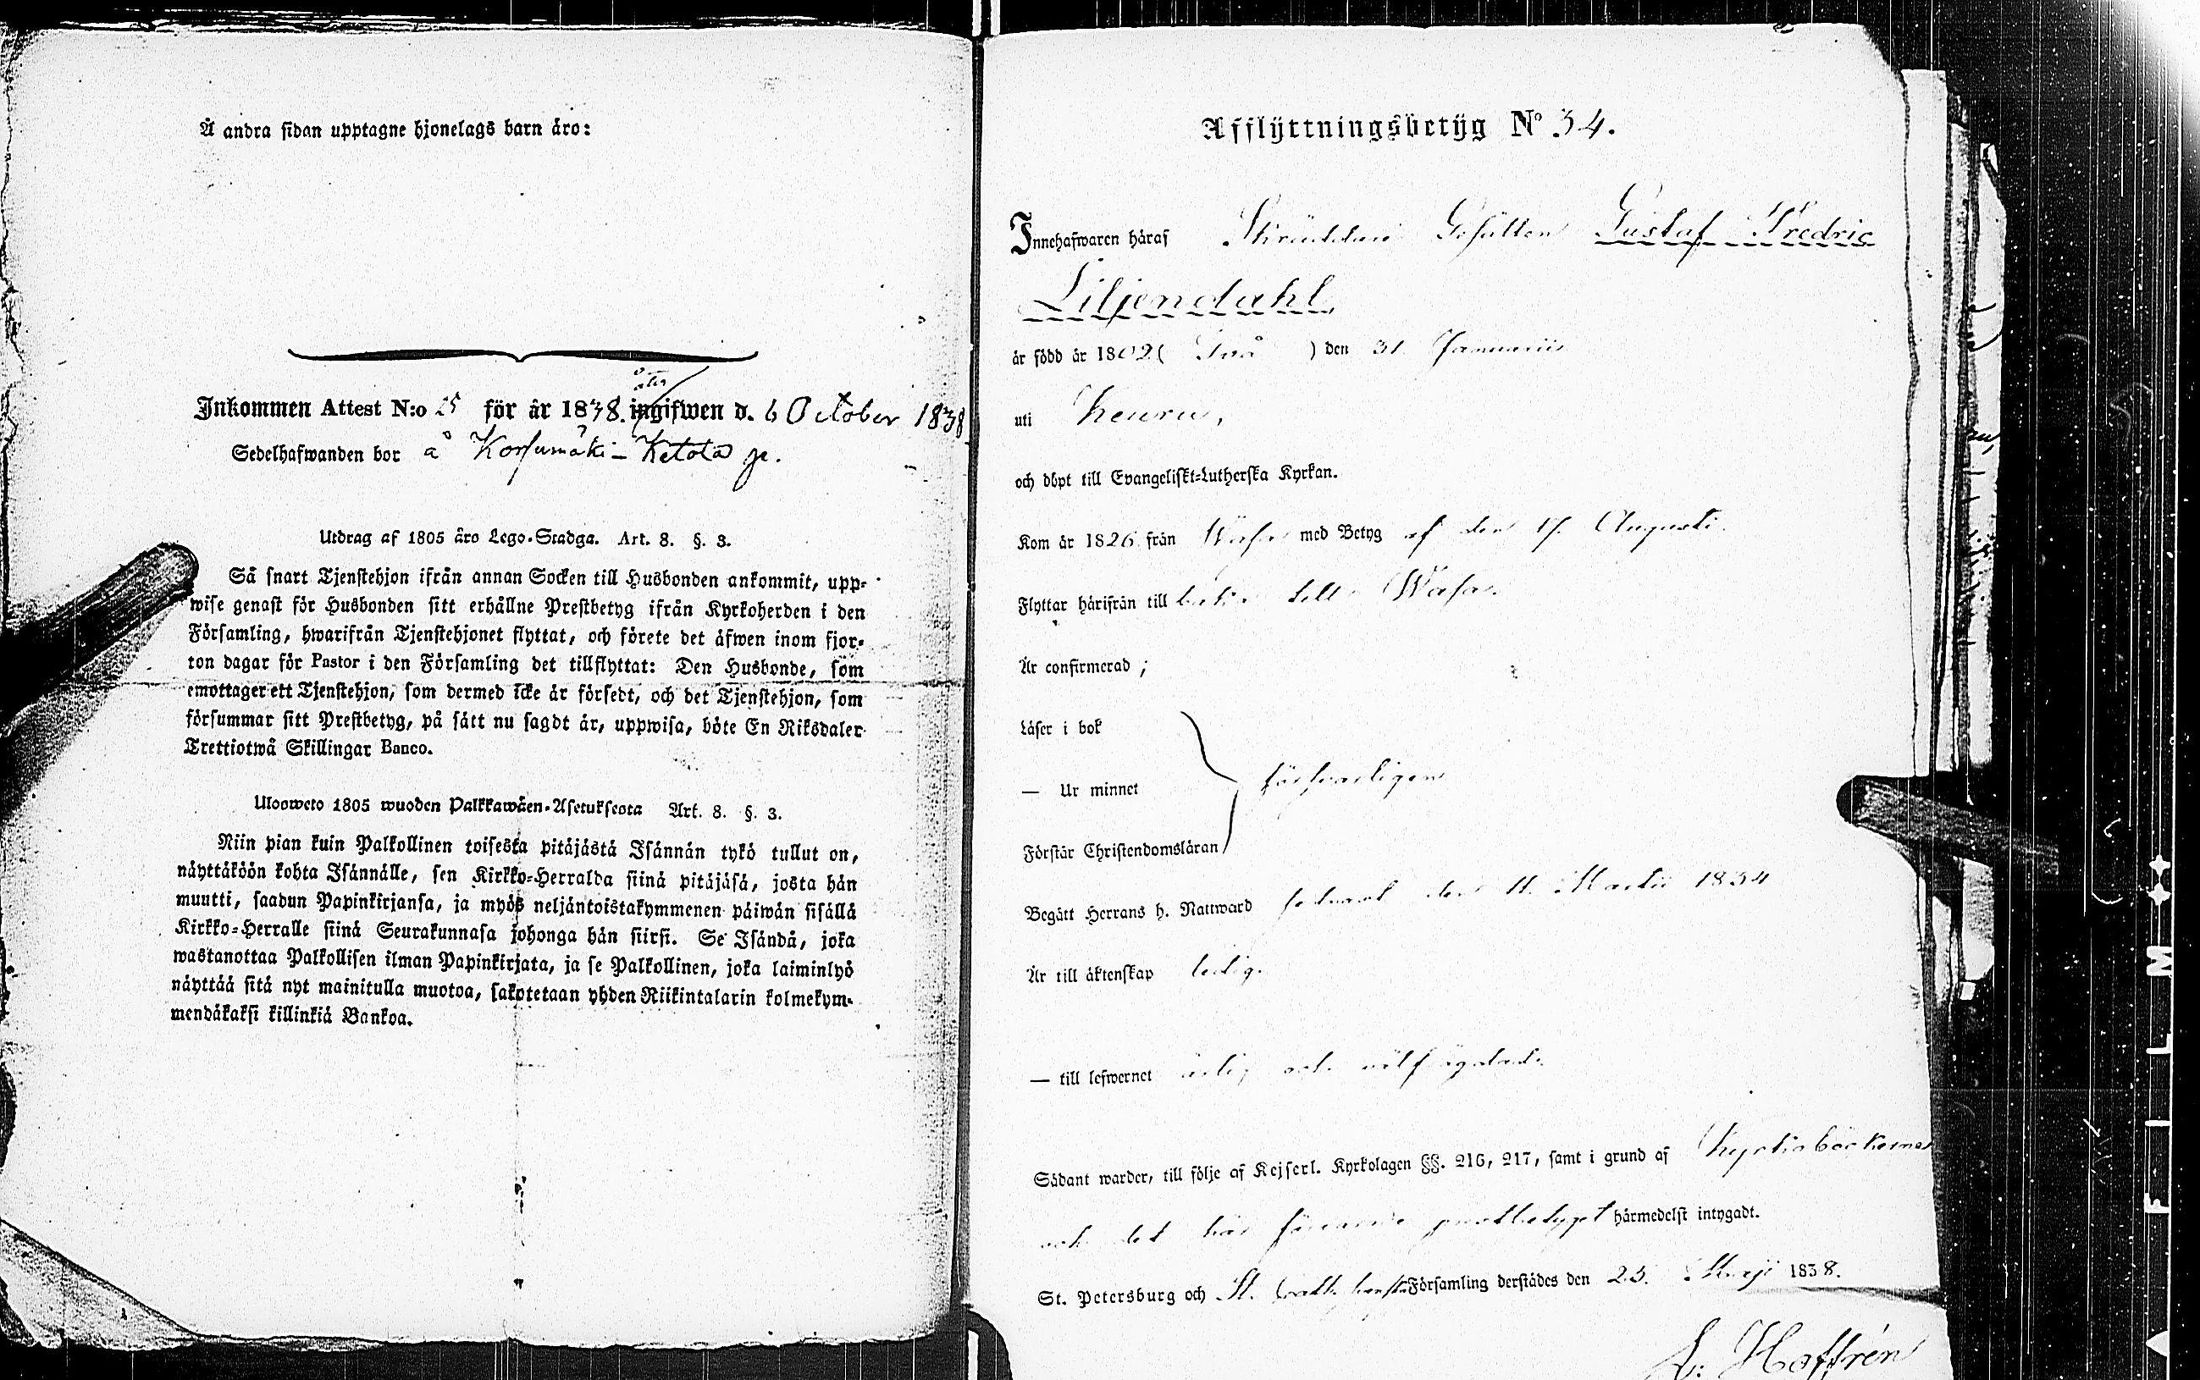 Å andra sidan upptagne hjonelags barn äro:
Inkommen Attest N:o 25 för år 1838. åter ingifwen d. 6 October 1838
Sedelhafwanden bor å Korsumäki-Ketola
Utdrag af 1805 åro Lego-Stadga. Art. 8. §. 3.
Så snart Tjenstehjon ifrån annan Socken till Husbonden ankommit, upp-
wise genast för Husbonden sitt erhållne Prestbetyg ifrån Kyrkoherden i den
Församling, hwarifrån Tjenstehjonet flyttat, och förete det äfwen inom fjor-
ton dagar för Pastor i den Församling det tillflyttat: Den Husbonde, som
emottager ett Tjenstehjon, som dermed icke är försedt, och det Tjenstehjon, som
försummar sitt Prestbetyg, på sätt nu sagdt är, uppwisa, böte En Riksdaler
Trettiotwå Skillingar Banco.
Ulosweto 1805 wuoden Palkkawäen-Asetuksesta Art. 8. §. 3.
Niin pian kuin Palkollinen toisesta pitäjästä Isännän tykö tullut on,
näyttäköön kohta Isännälle, sen Kirkko-Herralda siinä pitäjäsä, josta hän
muutti, saadun Papinkirjansa, ja myös neljäntoistakymmenen päiwän sisällä
Kirkko-Herralle siinä Seurakunnasa johonga hän siirsi. Se Isändä, joka
wastanottaa Palkollisen ilman Papinkirjata, ja se Palkollinen, joka laiminlyö
näyttää sitä nyt mainitulla muotoa, sakotetaan yhden Riikintalarin kolmekym-
mendäkaksi killinkiä Bankoa.
Afflyttningsbetyg No 34.
Innehafwaren häraf Skräddare Gesällen Gustaf Fredric
Liljendahl
är född år 1802 ( Två ) den 31 Januarii
uti Keuru,
och döpt till Evangeliskt-Lutherska Kyrkan.
Kom år 1826 från Wasa med Betyg af den 17 Augusti
Flyttar härifrån till till Wasa.
Är confirmerad ;
Läser i bok
— Ur minnet försvarligen
Förstår Christendomsläran
Begått Herrans h. Nattward sednast den 11 Martii 1834
Är till äktenskap ledig.
— till lefwernet ärlig och
Sådant warder, till följe af Kejserl. Kyrkolagen §§. 216, 217, samt i grund af Kyrkoböckerna
och det här prestbetyget härmedelst intygadt.
St. Petersburg och St. Församling derstädes den 25. Maji 1838.
Hoffrén
FILM